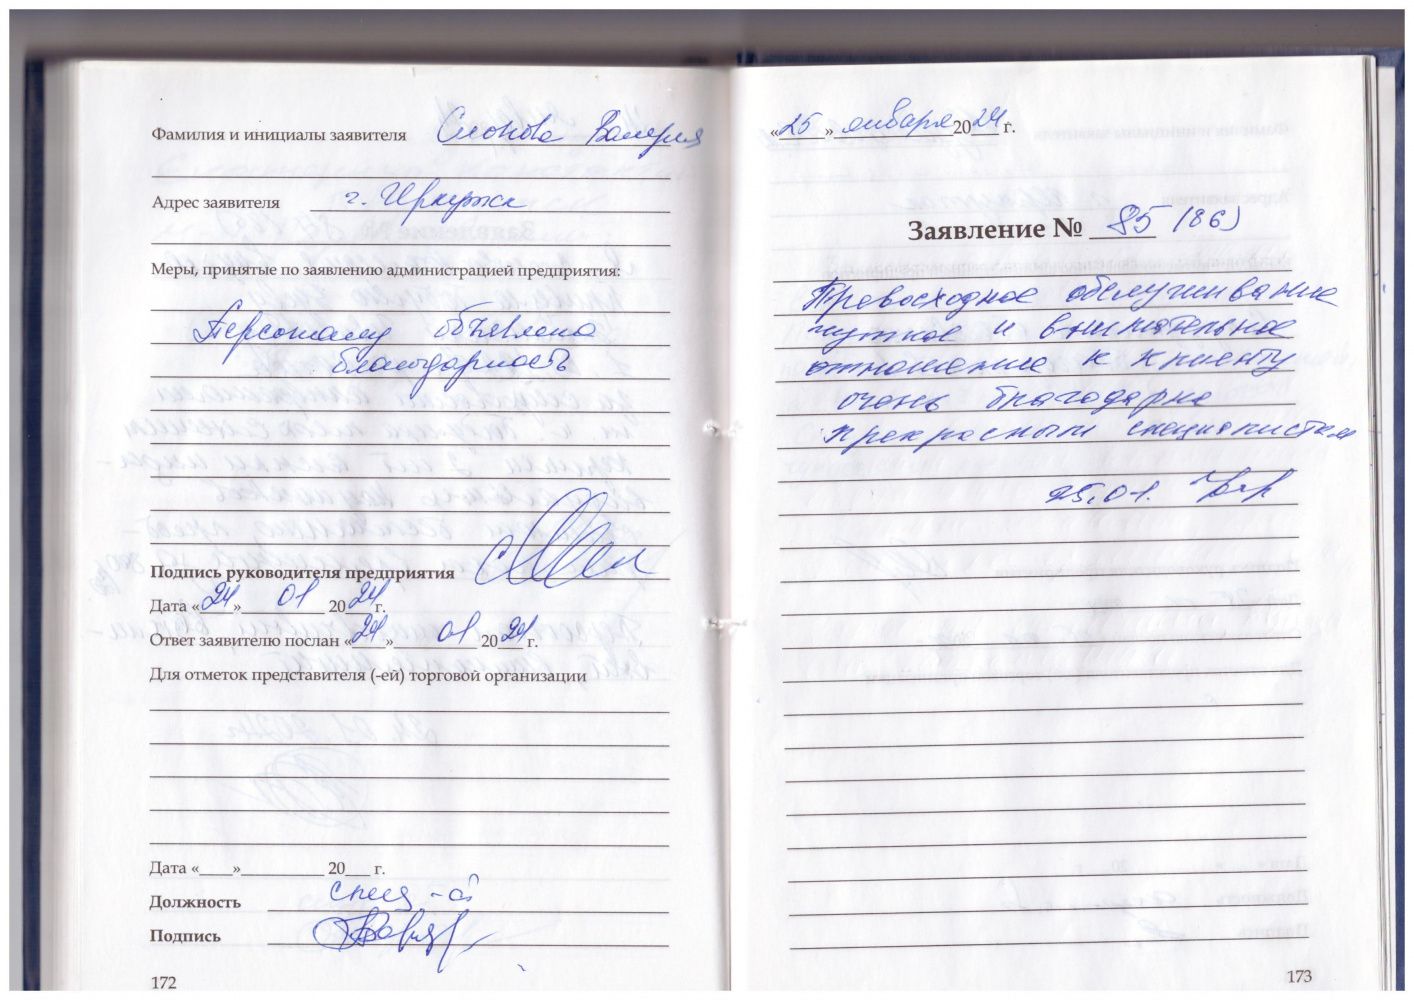 Фамилия и инициалы заявителя Слонова Валерия
Адрес заявителя г. Иркутск
Меры, принятые по заявлению администрацией предприятия:
Персоналу объявлена
благодарность
Подпись руководителя предприятия
Дата «24» 01 2024 г.
Ответ заявителю послан «24» 01 2024 г.
Для отметок представителя (-ей) торговой организации
Дата «____»__________ 20___ г.
Должность спец-т
Подпись
172
«25» января 2024 г.
Заявление № 85 (86)
Превосходное обслуживание
чуткое и внимательное
отношение к клиенту
очень благодарна
прекрасным специалистам
25.01.
173